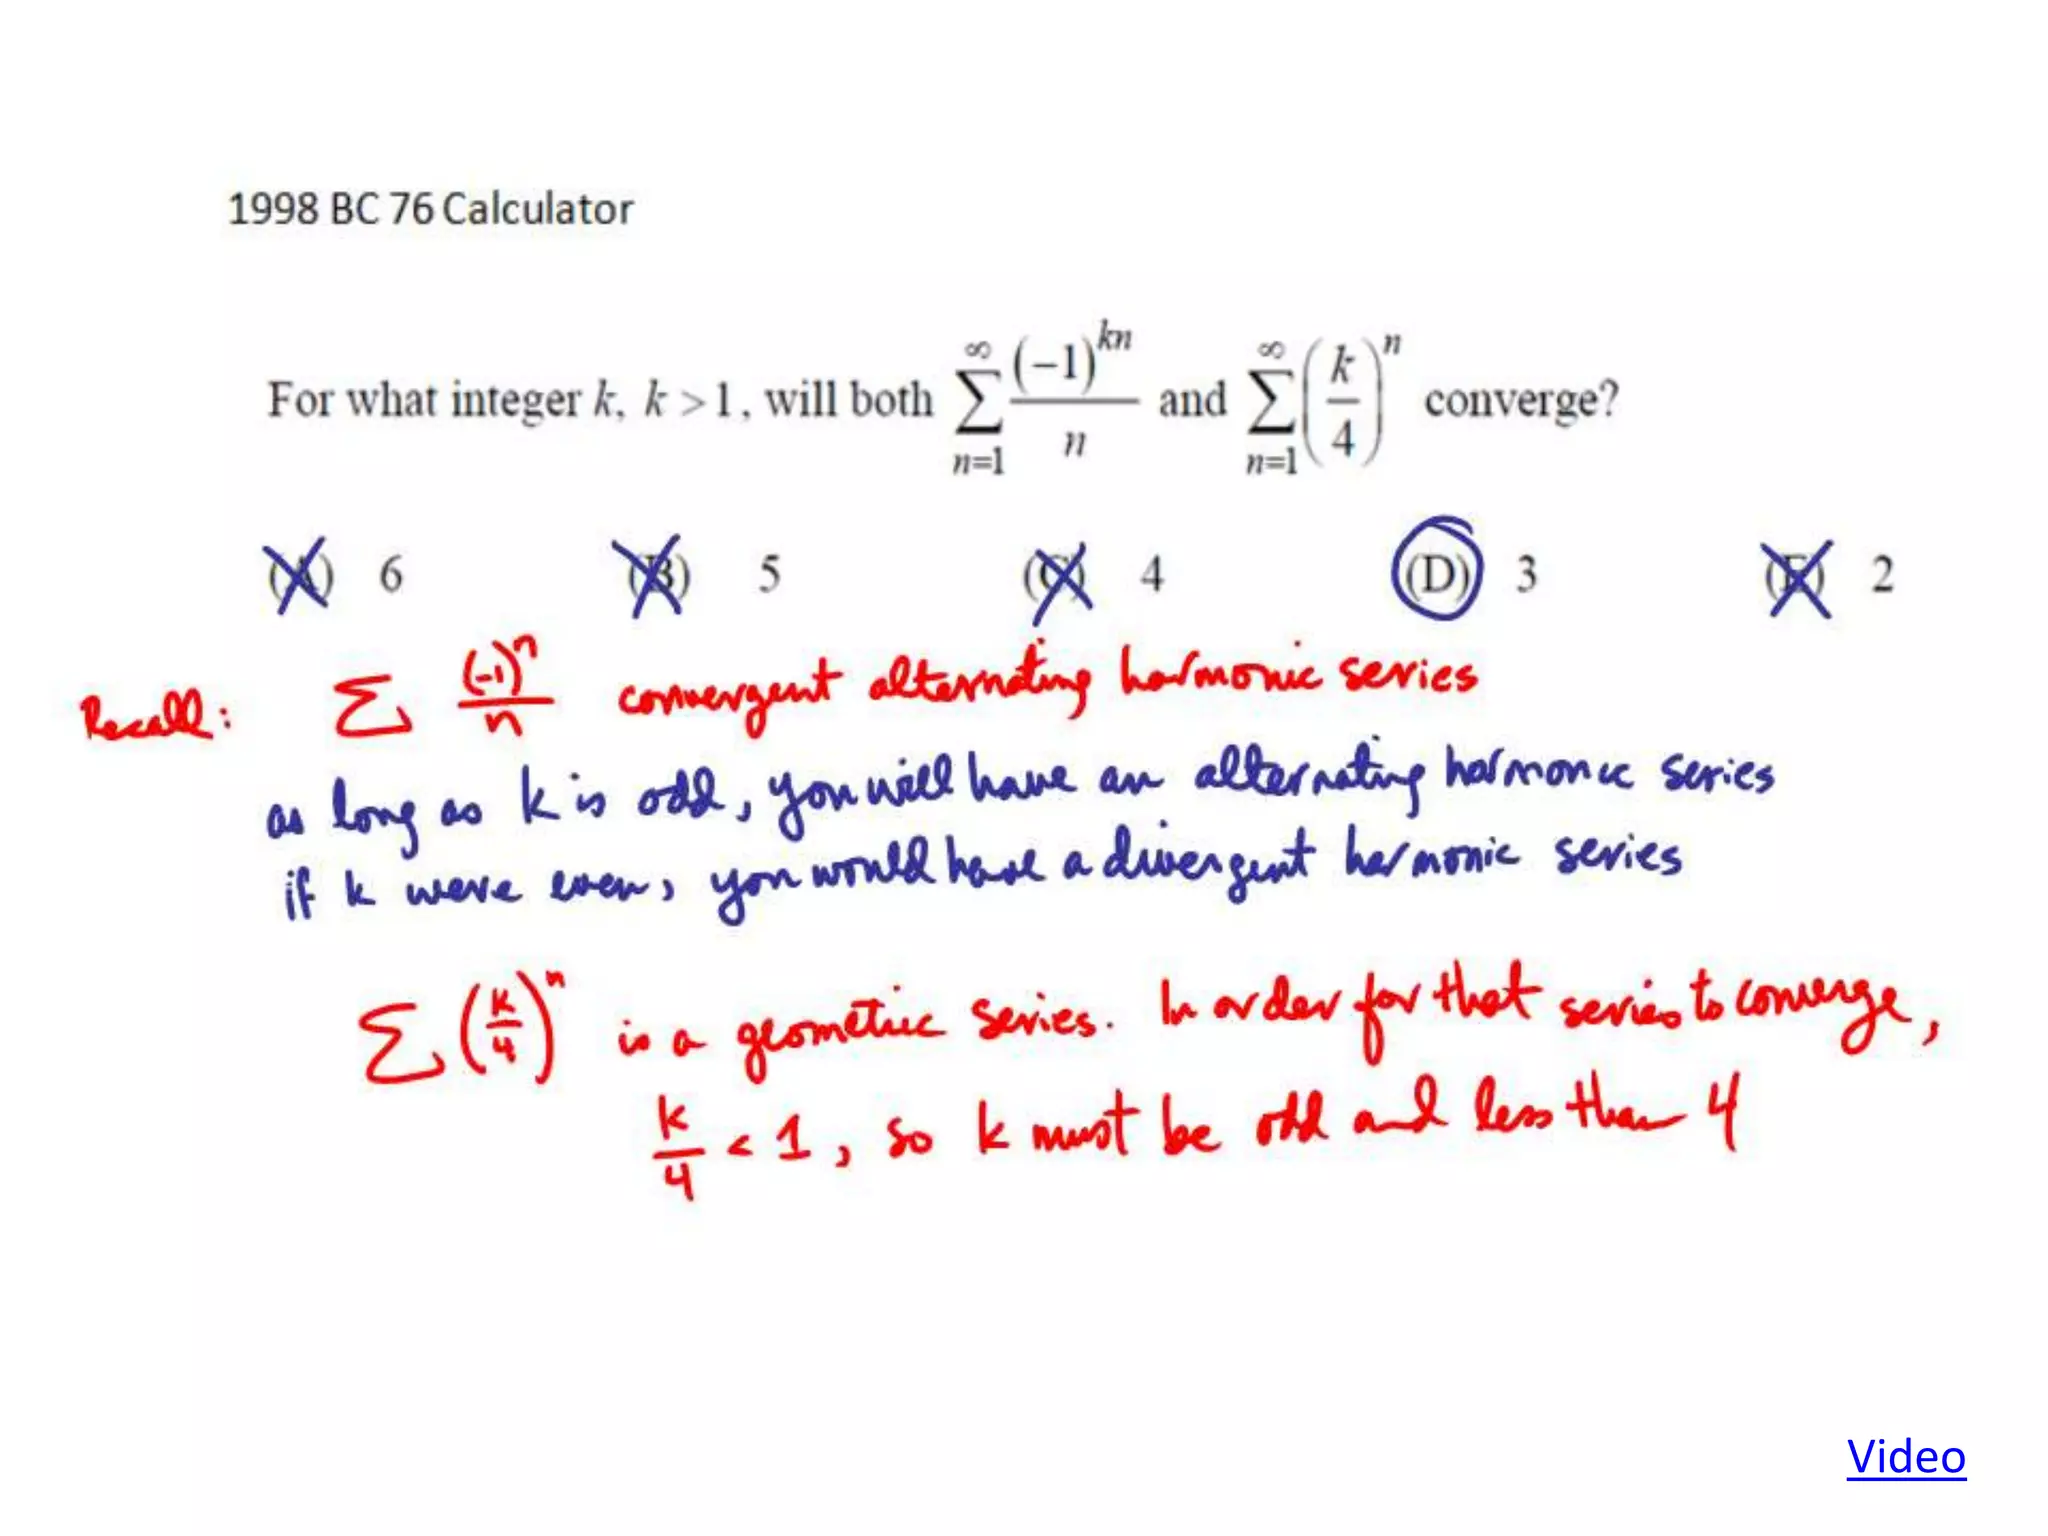 1998 BC 76 Calculator
For what integer k, k > 1, will both ∑_{n=1}^{∞} (−1)^{kn}/n and ∑_{n=1}^{∞} (k/4)^n converge?
(A) 6 (B) 5 (C) 4 (D) 3 (E) 2
Recall: ∑ (-1)^n/n convergent alternating harmonic series
as long as k is odd, you will have an alternating harmonic series
if k were even, you would have a divergent harmonic series
∑(k/4)^n is a geometric series. In order for that series to converge,
k/4 < 1, so k must be odd and less than 4
Video